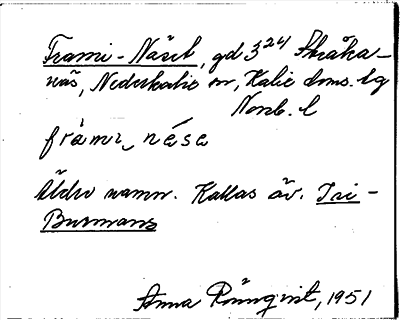 Frami-Näset, gd 3²⁴ Stråka-
näs, Nederkalix sn, Kalix doms. lg
Norrb. l
frámı, nése
Äldre namn. Kallas äv. Isi-
Burmans
Anna Rönnqvist, 1951